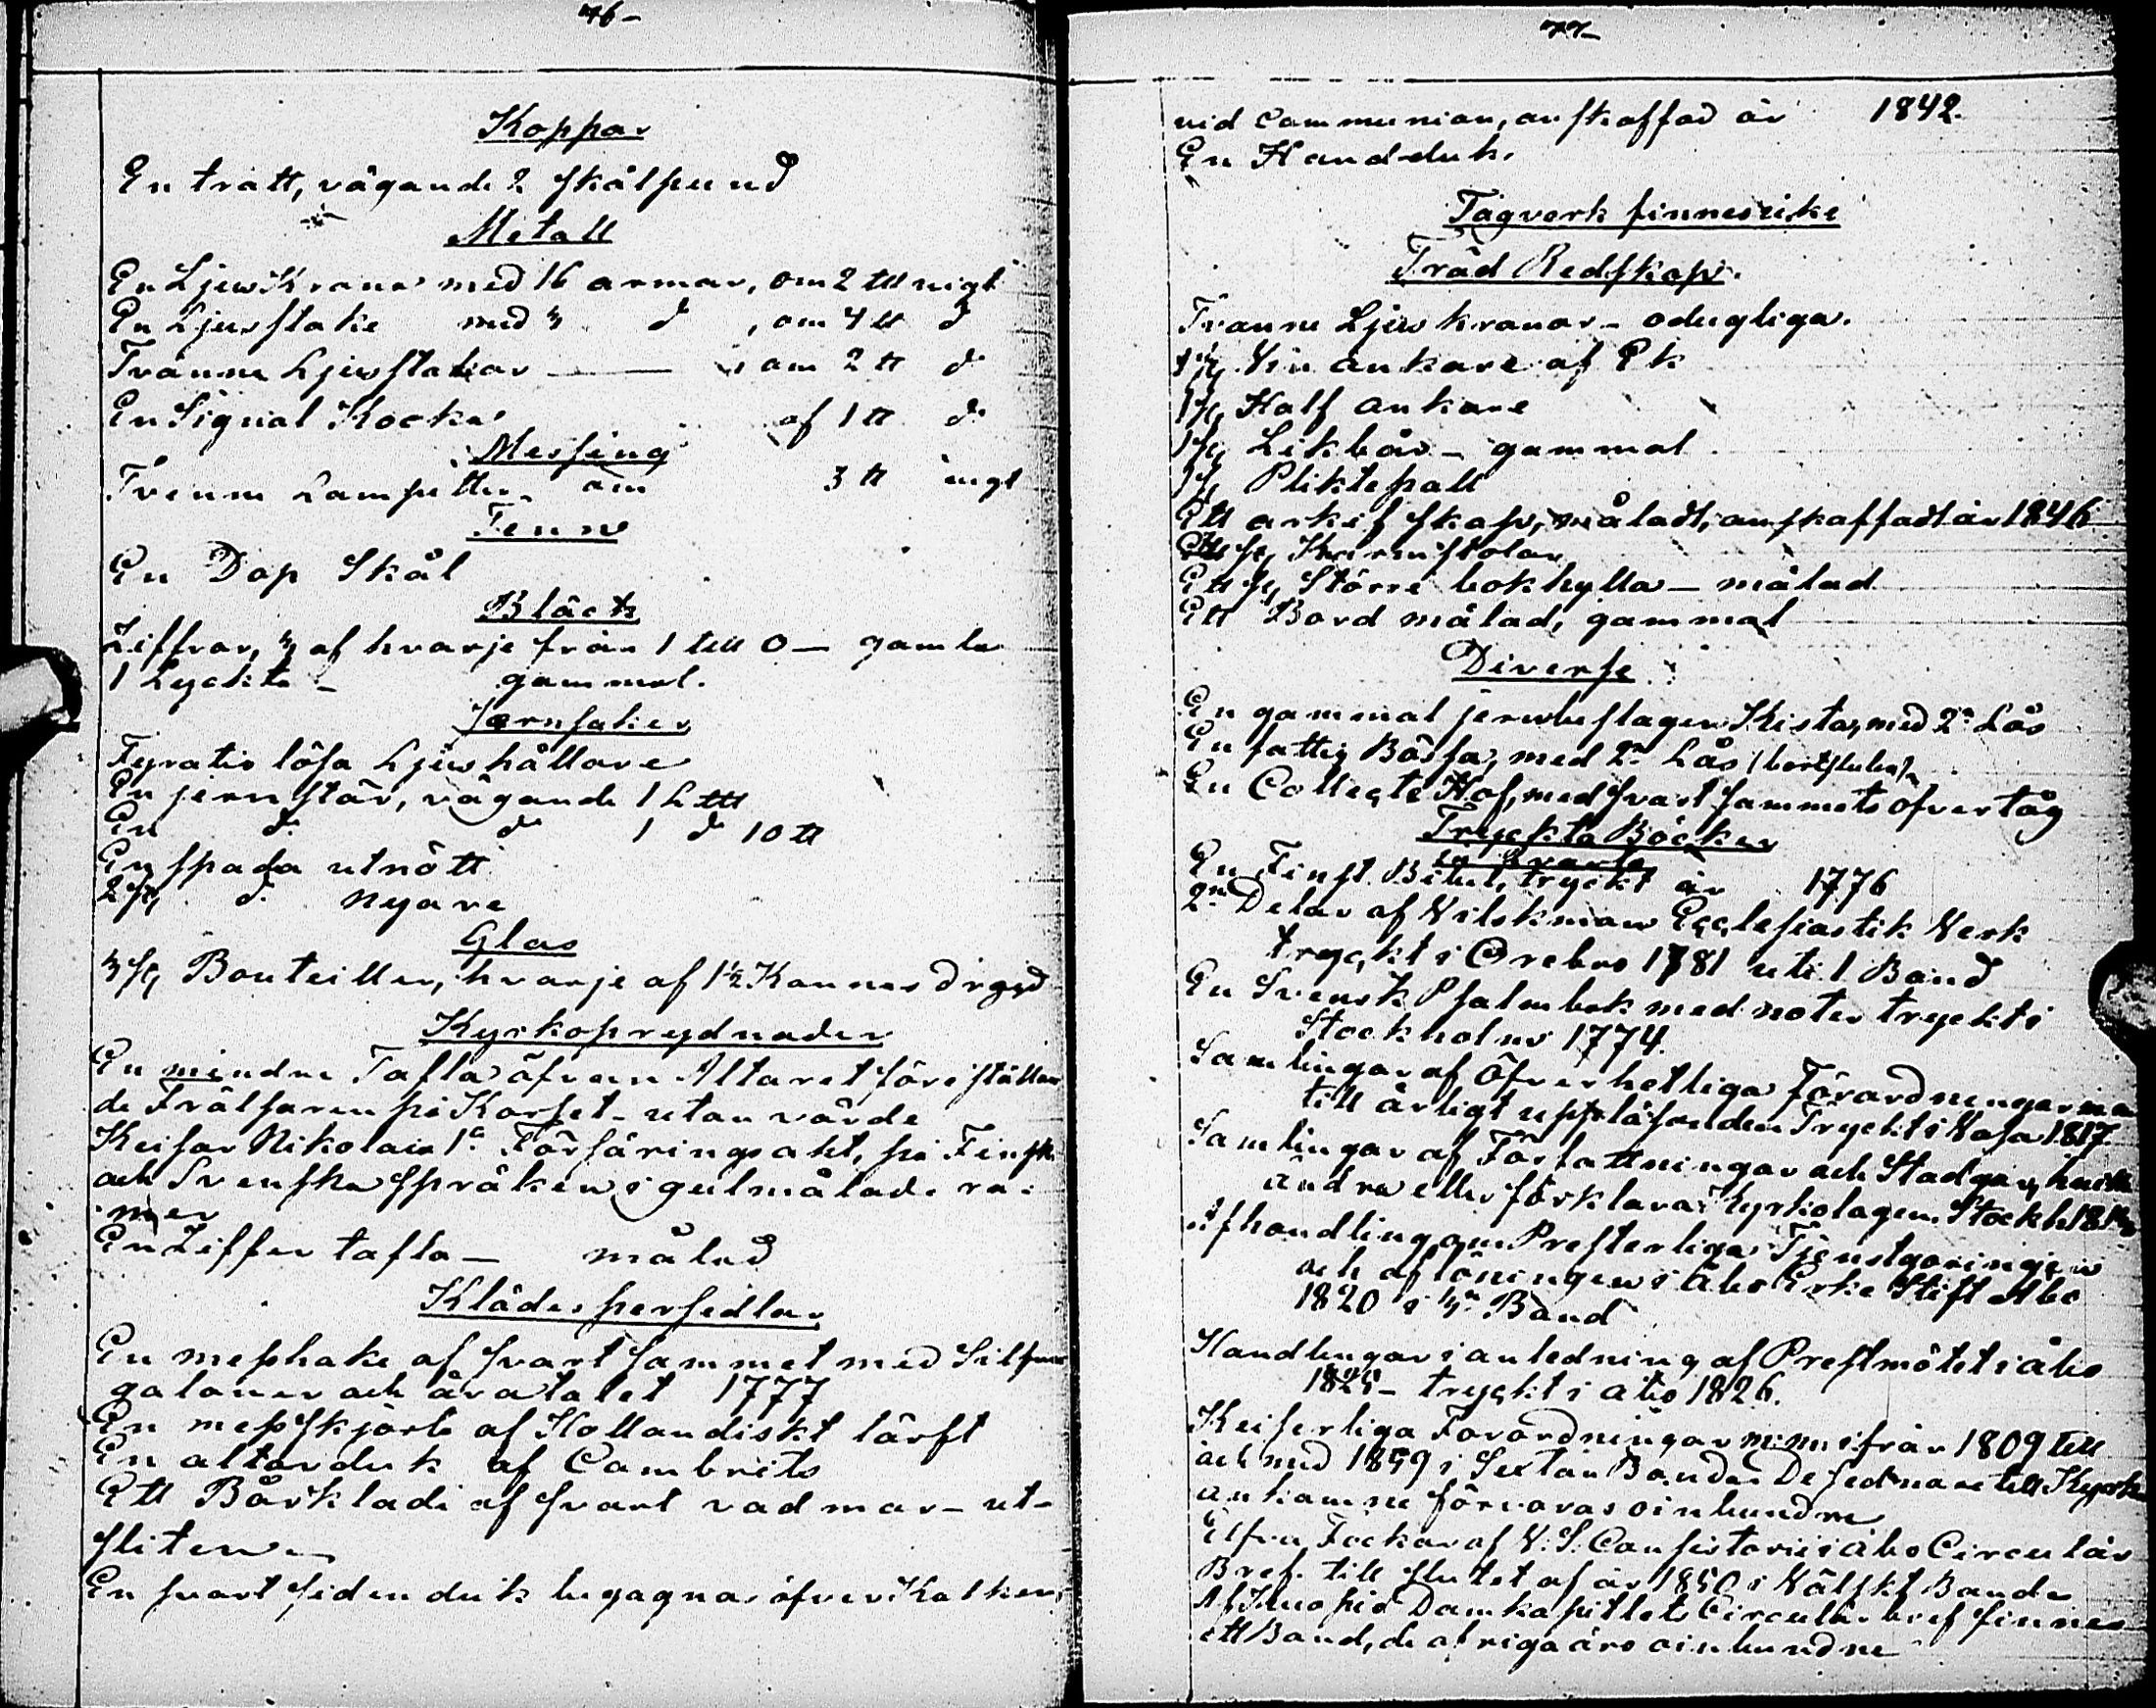 76-
Koppar
En tratt, vägande 2 skålpund
Metall
En LjusKrona med 16 armar, om 2 ltt vigt
En Ljusstake med 3 do , om 4 tt do
Tvänne Ljusstakar — om 2 tt do
En Signal Klocka af 1 tt do
Messing
Tvenne Lampetter om 3 tt vigt
Tenn
En Dop Skål
Bläck
Ziffror, 3 af hvarje från 1 till 0 — gamla
1 Lyckta - gammal.
Jernsaker
Fyratio lösa Ljushållare
En jernstör, vägande 1 L ttt
En do do 1 do 10 tt
En spada utnött
2 st, do nyare
Glas
3 st, Bouteiller, hvarje af 1½ Kannas drygd
Kyrkoprydnader
En mindre Tafla öfvan Altaret föreställan
de Frälsaren på Korset - utan värde
Keisar Nikolais 1a Försäringsakt, på Finska
och Svenska språken i gulmålade ra:
mer
En Ziffer tafla — målad
Klädespersedlar
En messhake af svart sammet med Silfver
galoner och åratalet 1777
En messskjorta af Hollandiskt lärft
En altarduk af Cambrits
Ett Bårkläde af svart vadmar - ut-
sliten
En svart sidenduk begagnas öfver Kalken
77-
vid Communion, anskaffad år 1842.
En Handduk.
Tågverk finnes icke
Träd Redskap.
Tvänne Ljuskronor - odugliga.
1 st, Vin ankare af Ek
1 st, Half ankare
1 st, Likbår - gammal
1 st, Pliktepall
Ett arkif skåp, måladt, anskaffadt år 1846
st,
Ett st, Större bokhylla — målad
Ett Bord målad, gammal
Diverse
En gammal jernbeslagen Kista, med 2ne Lås
En fattig Bössa, med 2ne Lås (bortstulen)
En Collecte Håf, med svart sammets öfvertåg
Tryckta Böcker
in Qvarto
En Finsk Bibel, tryckt år 1776
2ne Delar af Wilskmans Ecclesiastik Verk
tryckt i Örebro 1781 uti 1 Band
En Svensk Psalmbok med noter tryckt i
Stockholm 1774.
Samlingar af Öfverhetliga Förordningar
till årligt uppläsande Tryckt i Vasa 1817
Samlingar af Författningar och Stadgar, hvilka
ändra eller förklara Kyrkolagen Stockh.
Afhandling om Presterliga Tjenstgöringen
och aflöningen i Åbo Erke Stift Åbo
1820 i Band
Handlingar i anledning af Prestmötet i Åbo
1825 - tryckt i Åbo 1826.
Keiserliga Förordningar m: m: ifrån 1809 till
och med 1859 i Sextan Bandar De sednare till Kyrkan
ankomne förvaras oinbundne
Elfva Tockar af V: S: Consistorii i Åbo Circulär
Bref till slutet af år 1850 i Vålskt Bande
Af Kuopio Domkapitlets Circulär bref finnes
ett Band, de öfriga äro oinbundne